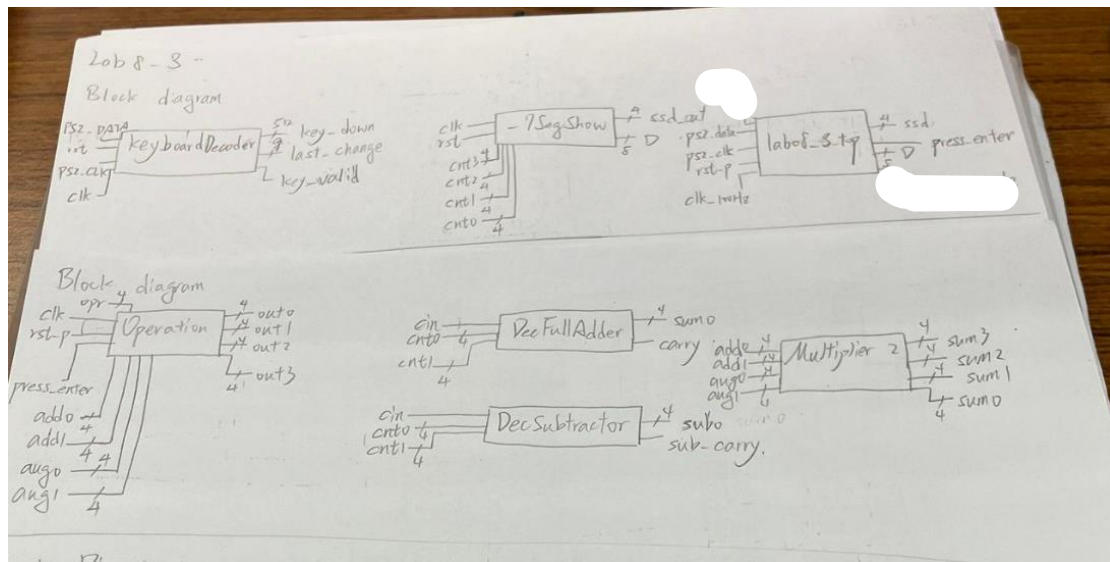 Lab 8-3
Block diagram
PS2_DATA
rst
PS2_CLK
clk
keyboardDecoder
512
key_down
9
last_change
key_valid
clk
rst
cnt3 4
cnt2 4
cnt1 4
cnt0 4
_7SegShow
4 ssd_out
8 D
ps2_data
ps2_clk
rst_p
clk_100Hz
lab08_3_top
4 ssd
D press_enter
8
Block diagram
opr 4
clk
rst-p
press_enter
add0 4
add1 4
aug0 4
aug1 4
Operation
4 out0
4 out1
4 out2
4 out3
cin
cnt0 4
cnt1 4
DecFullAdder
4 sum0
carry
cin
cnt0 4
cnt1 4
DecSubtractor
4 sub0
sub-carry.
add0 4
add1 4
aug0 4
aug1 4
Multiplier 2
4 sum3
4 sum2
4 sum1
4 sum0